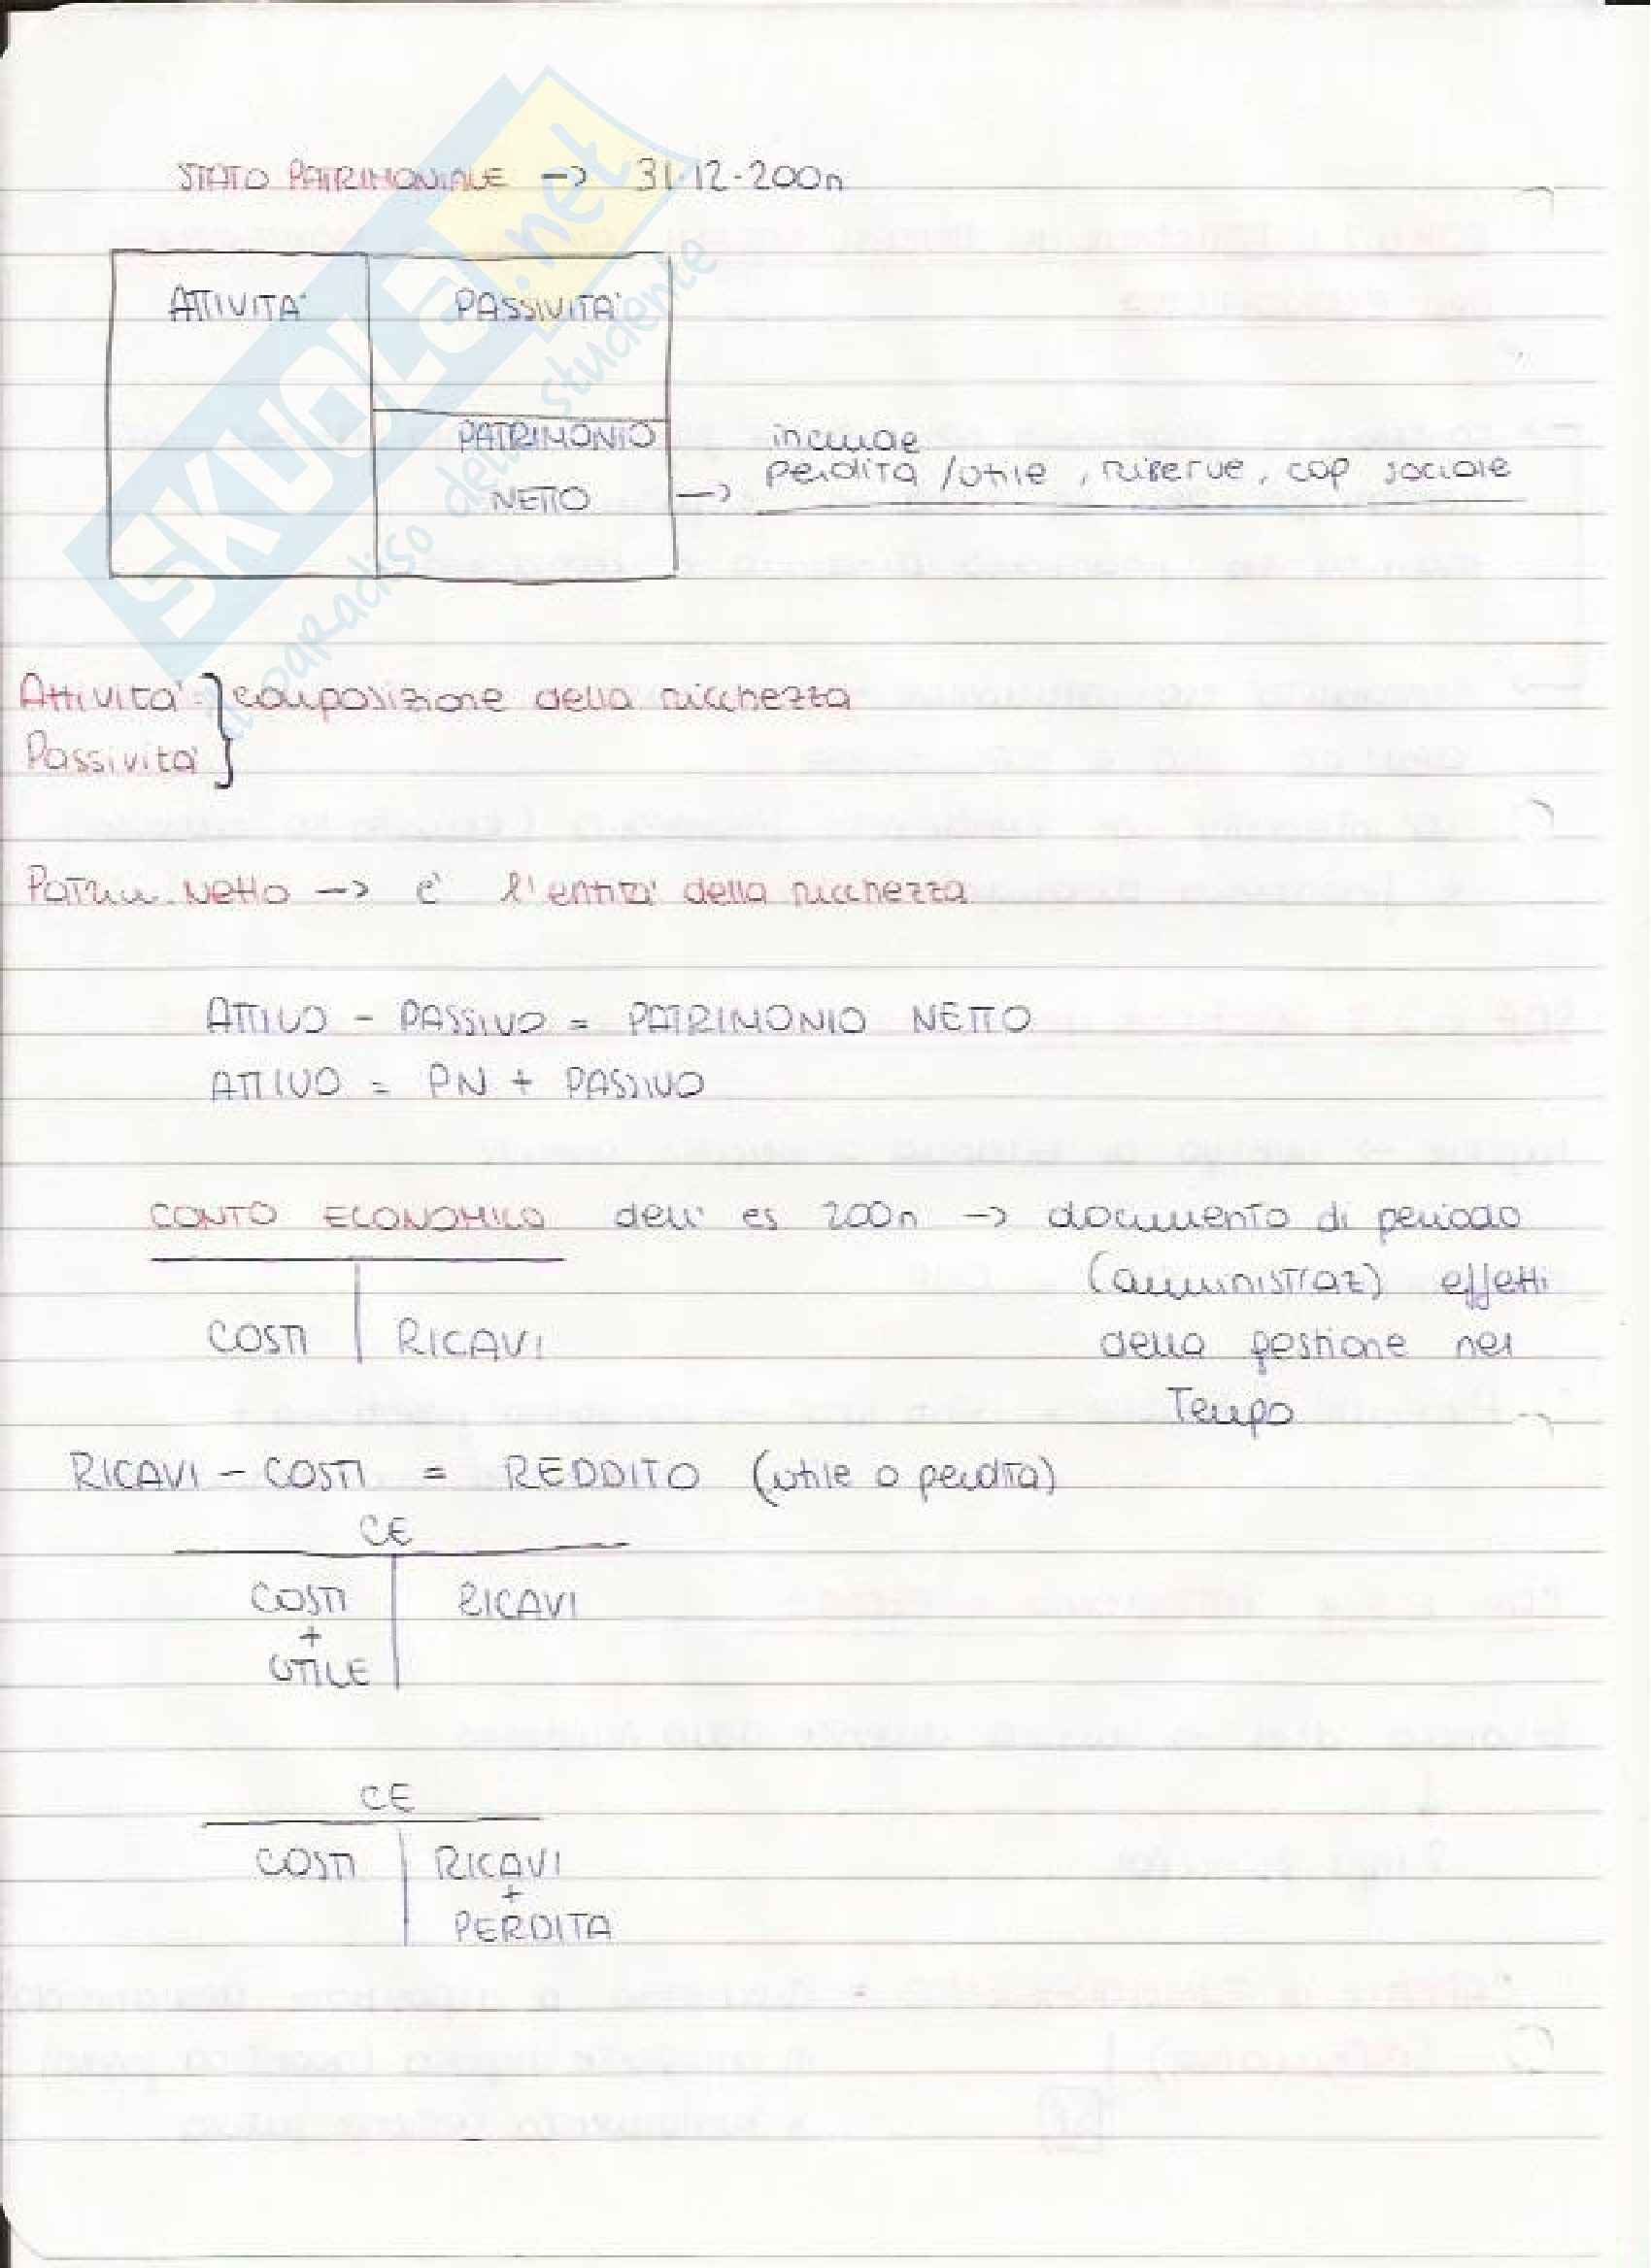 STATO PATRIMONIALE -> 31.12.200n
ATTIVITA' PASSIVITA'
PATRIMONIO
NETTO ->
include
perdita / utile, riserve, cap sociale
Attivita' } composizione della ricchezza
Passivita'
Patrim. Netto -> e' l'entita' della ricchezza
ATTIVO - PASSIVO = PATRIMONIO NETTO
ATTIVO = PN + PASSIVO
CONTO ECONOMICO dell' es 200n -> documento di periodo
(amministraz) effetti
della gestione nel
Tempo
COSTI RICAVI
RICAVI - COSTI = REDDITO (utile o perdita)
CE
COSTI RICAVI
+
UTILE
CE
COSTI RICAVI
+
PERDITA
SKUOLA.net
il paradiso dello studente